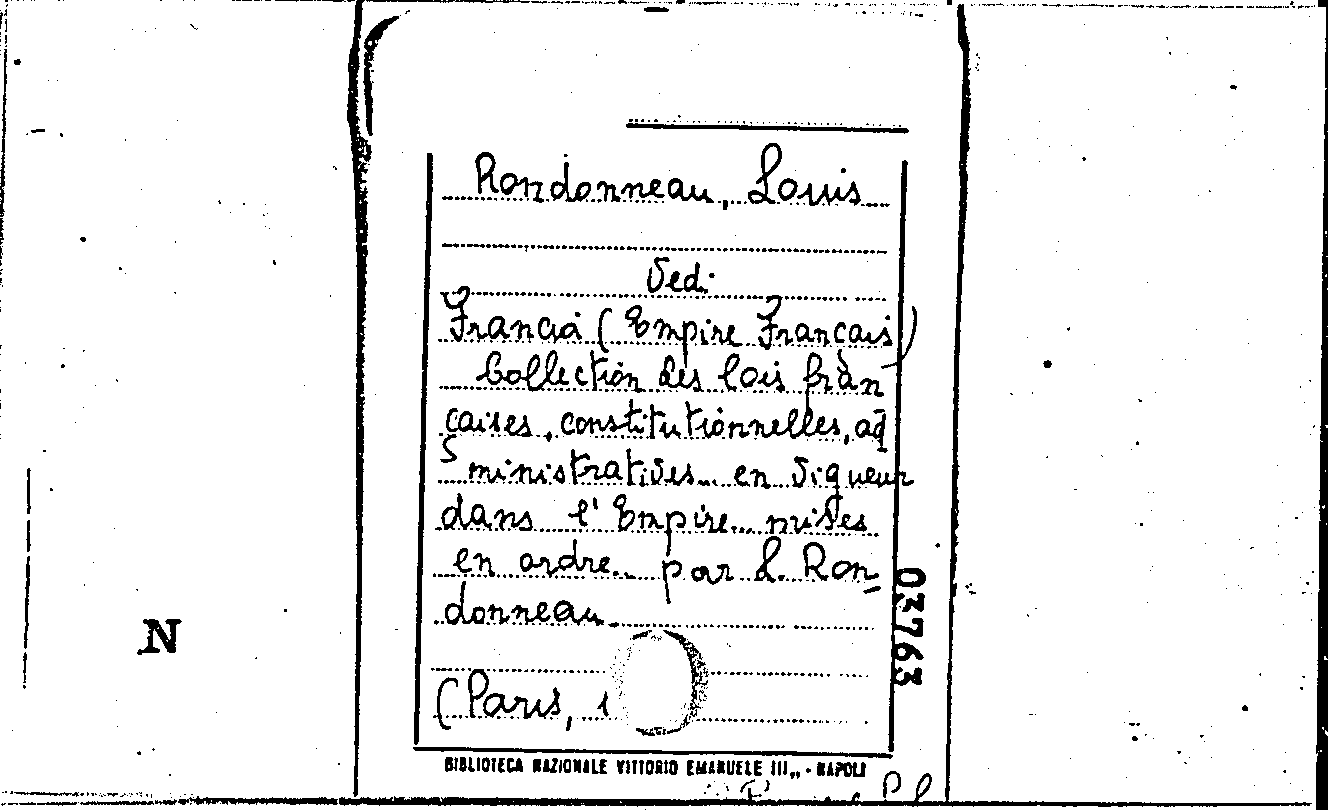 Rondonneau, Louis
Vedi
Francia (Empire Français)
Collection des lois fran
çaises, constitutionnelles, ad
ministratives... en vigueur
dans l'Empire... mises
en ordre... par L. Ron
donneau.
(Paris, 1
03763
N
BIBLIOTECA NAZIONALE VITTORIO EMANUELE III„ - NAPOLI